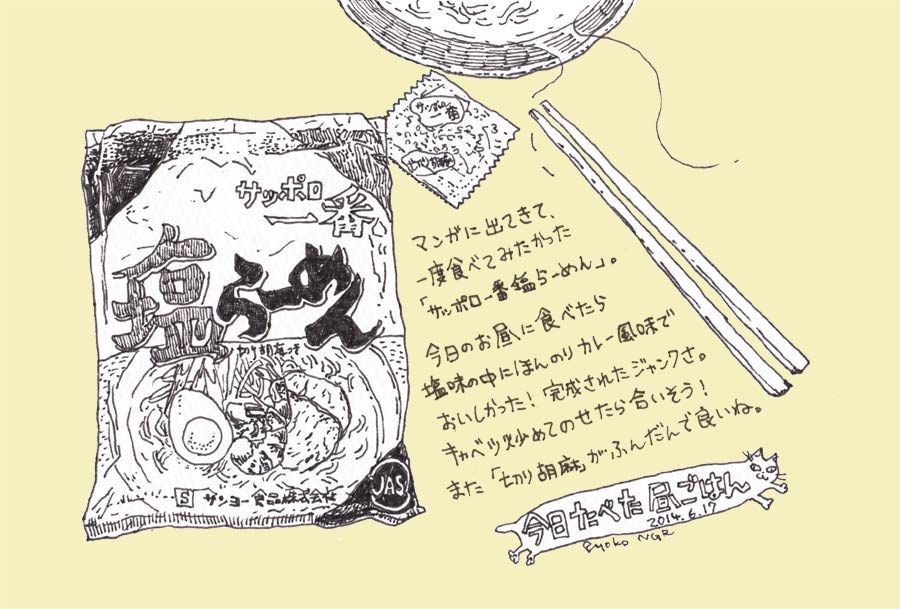 サッポロ
一番
切り胡麻
サッポロ
一番
塩らーめん
切り胡麻つき
S サンヨー食品株式会社
JAS
マンガに出てきて、
一度食べてみたかった
「サッポロ一番塩らーめん」。
今日のお昼に食べたら
塩味の中にほんのりカレー風味で
おいしかった！完成されたジャンクさ。
キャベツ炒めてのせたら合いそう！
また「切り胡麻」がふんだんで良いね。
今日たべた昼ごはん
2014.6.17
Ryoko NGR